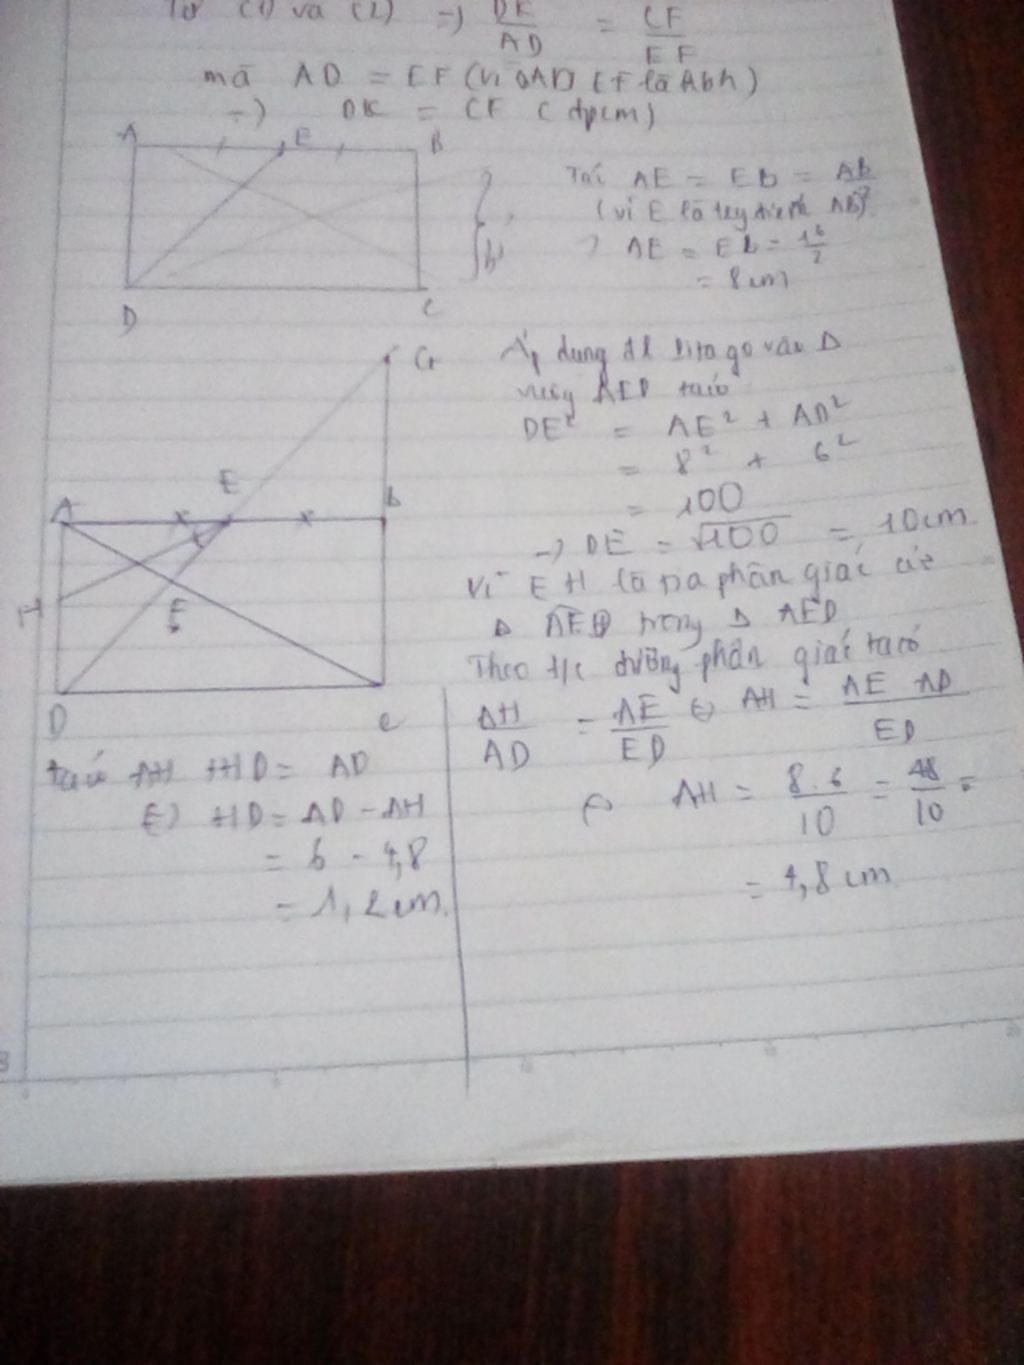 Từ (1) và (2) => DK/AD = CF/EF
mà AD = EF (vì AD EF là hbh)
=> DK = CF (đpcm)
A E B
D C
Ta có AE = EB = AB/2
(vì E là AB)
AE = EB = 16/2
= 8cm
G
A E B
H F
D C
Áp dụng đl pitago vào Δ
vuông AED ta có
DE² = AE² + AD²
= 8² + 6²
= 100
=> DE = √100 = 10cm
Vì EH là tia phân giác của
Δ AED trong Δ AED
Theo t/c đường phân giác ta có
AH/AD = AE/ED <=> AH = AE AD/ED
<=> AH = 8.6/10 = 48/10 =
= 4,8cm
ta có AH + HD = AD
<=> HD = AD - AH
= 6 - 4,8
= 1,2cm